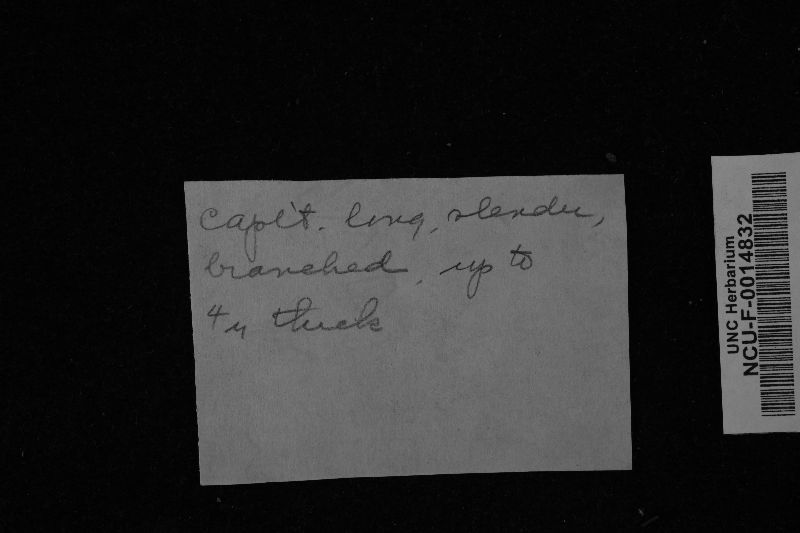 Capl't. long, slender,
branched, up to
4μ thick
UNC Herbarium
NCU-F-0014832